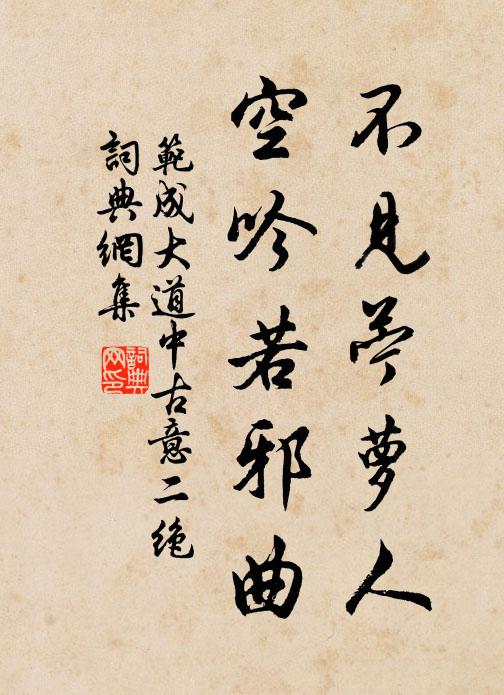 不見苧萝人
空吟若邪曲
範成大道中古意二絶
詞典網集
詞典
网印